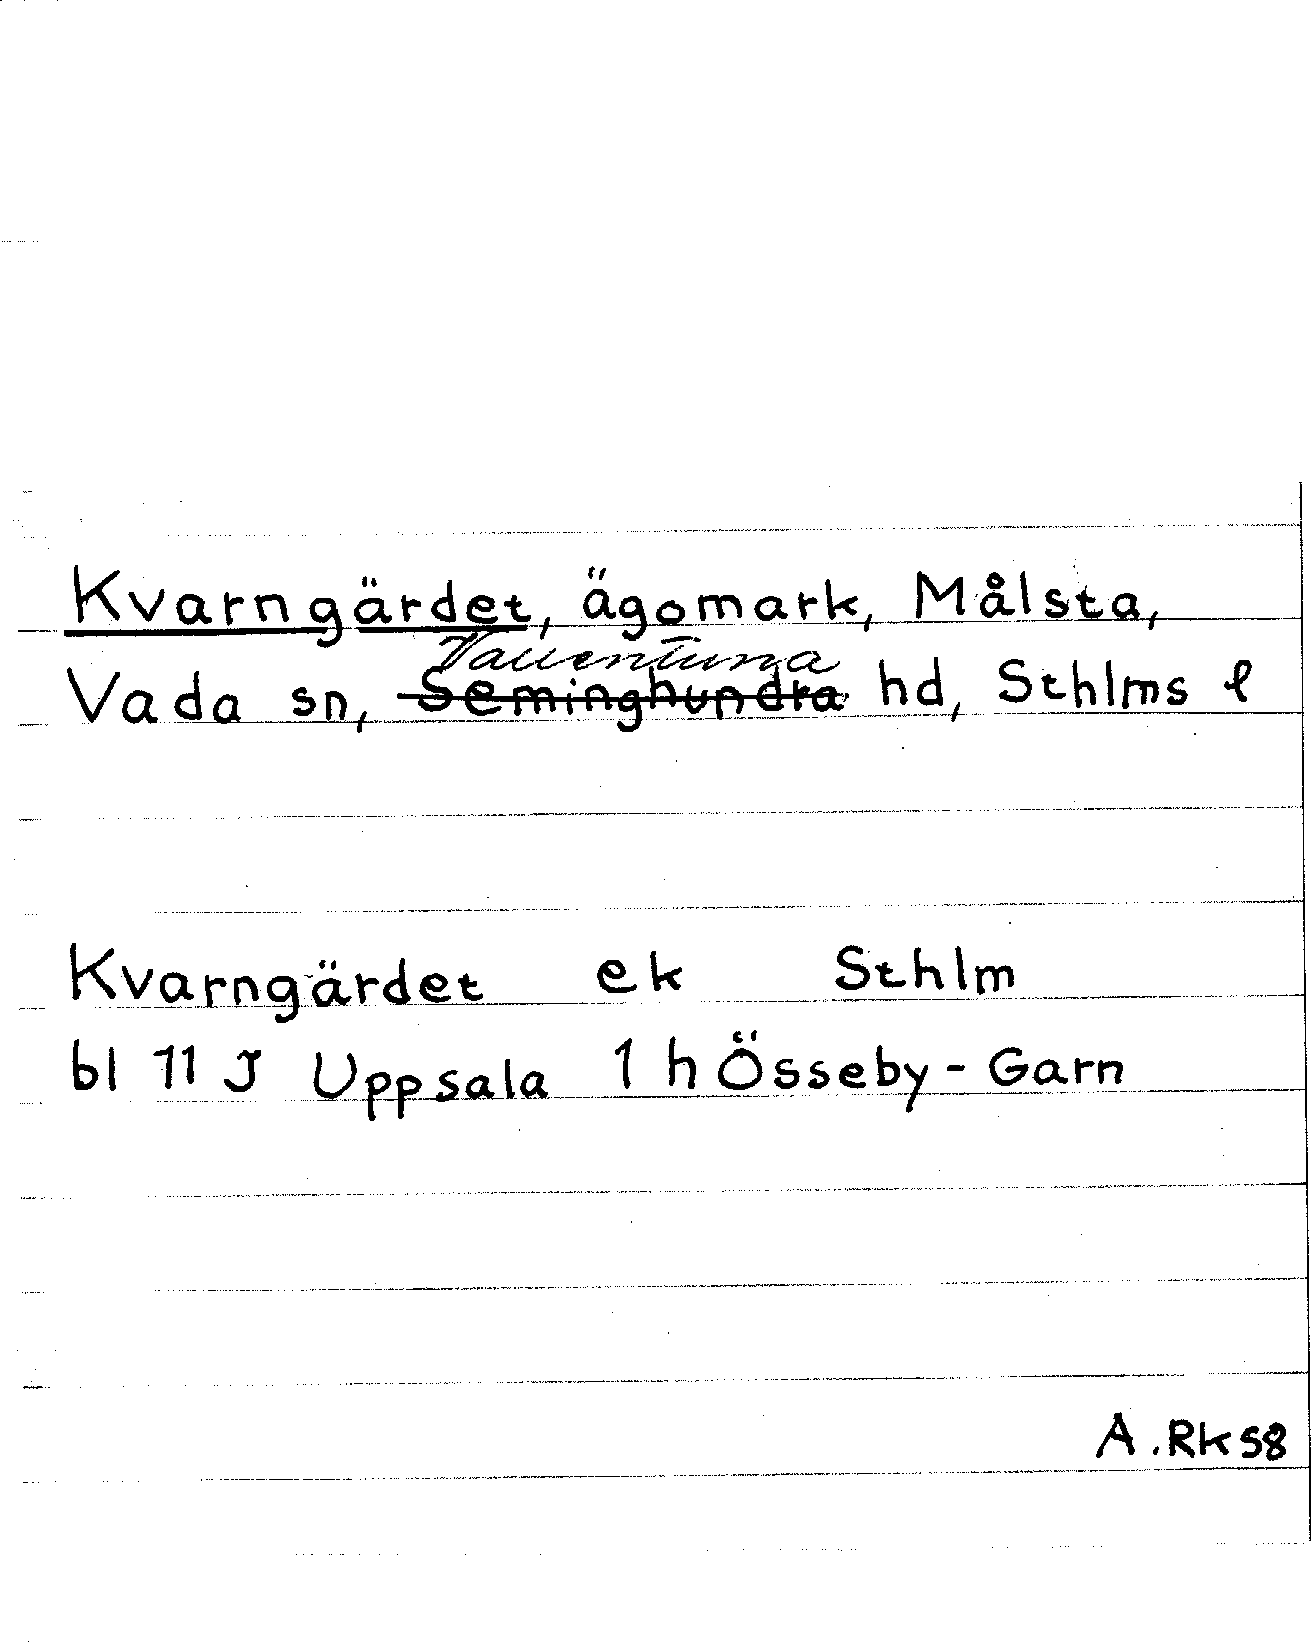 Kvarngärdet, ägomark, Målsta,
Vallentuna
Vada sn, Seminghundra hd, Sthlms l
Kvarngärdet ek Sthlm
bl 11 J Uppsala 1 h Össeby-Garn
A.Rk58